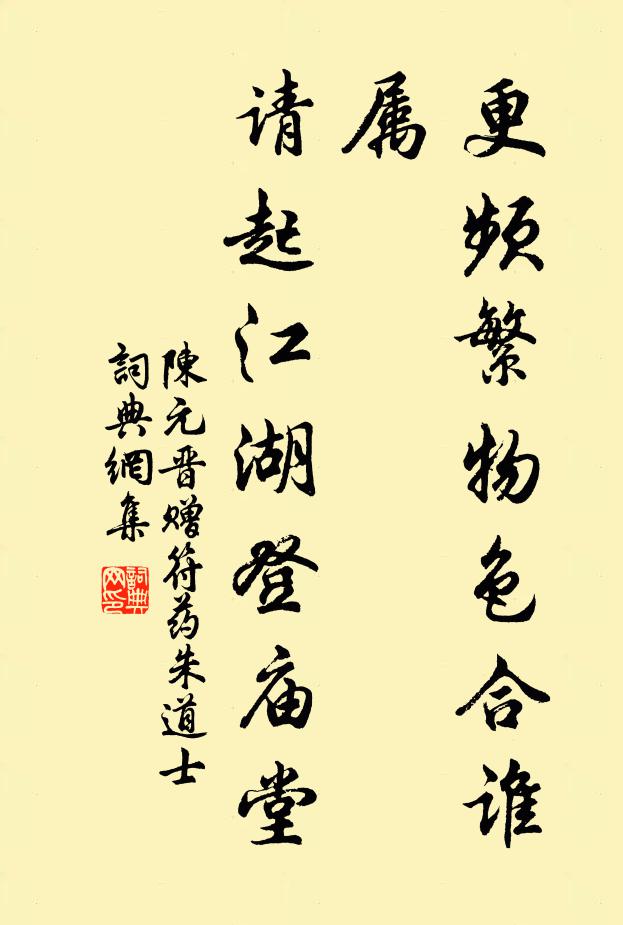 更频繁物色合谁
属
请起江湖登庙堂
陳元晋赠符药朱道士
詞典網集
詞典网印